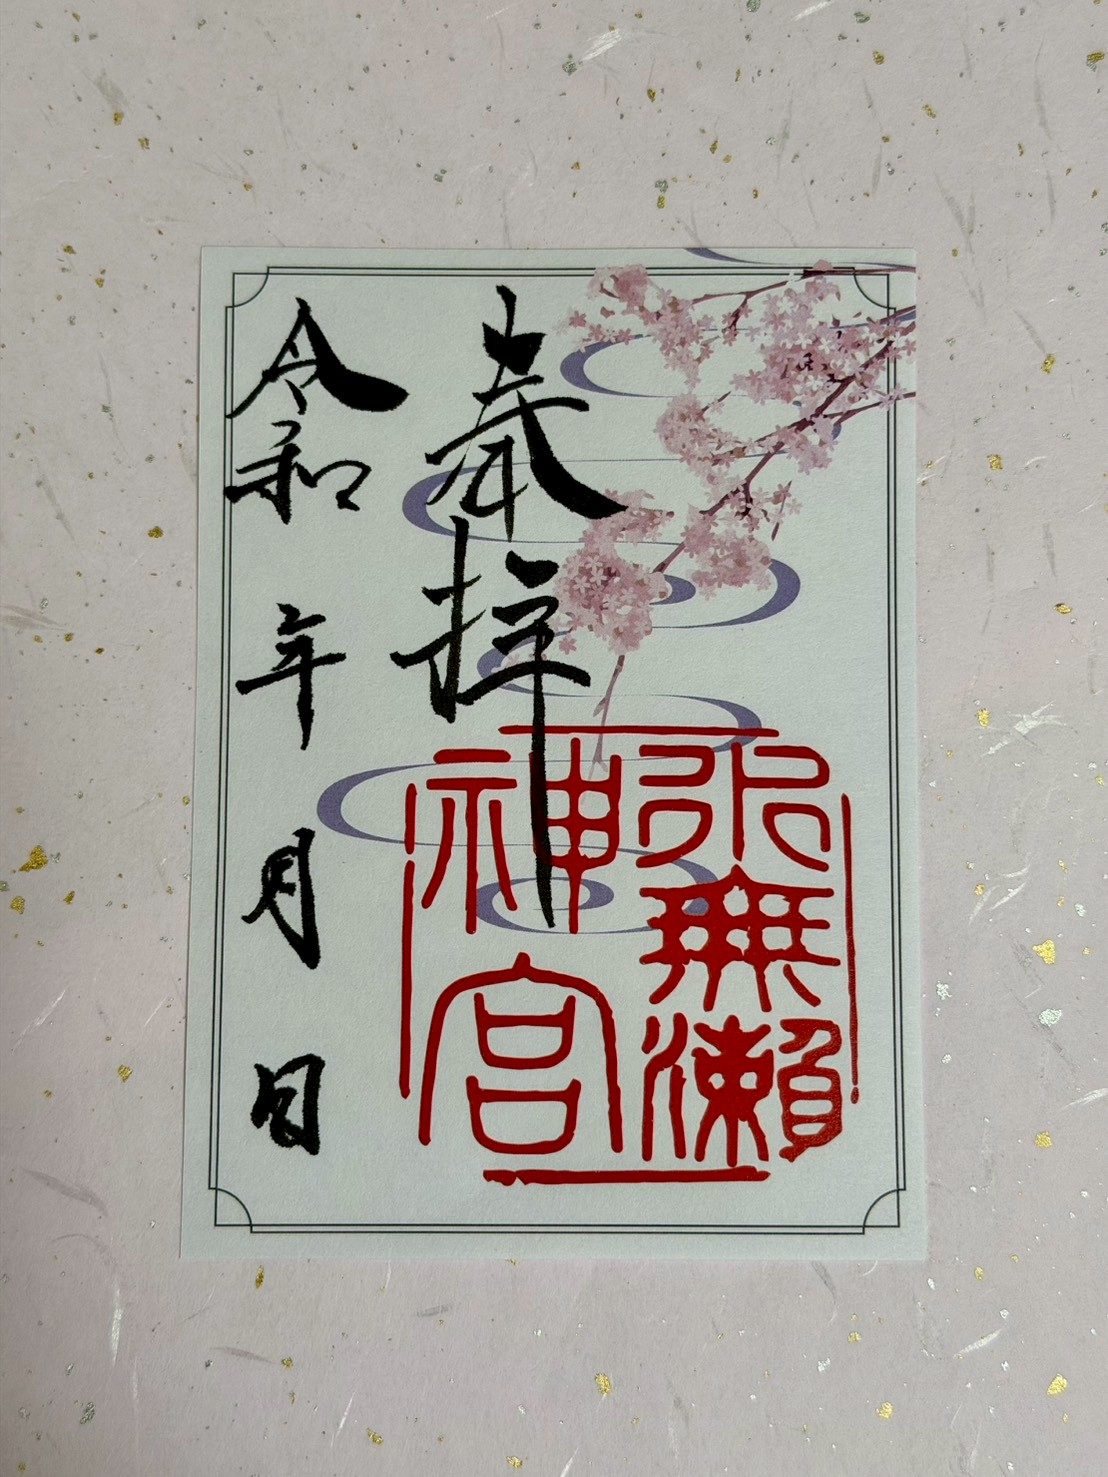 奉拝
水無瀨
神宮
令和 年 月 日